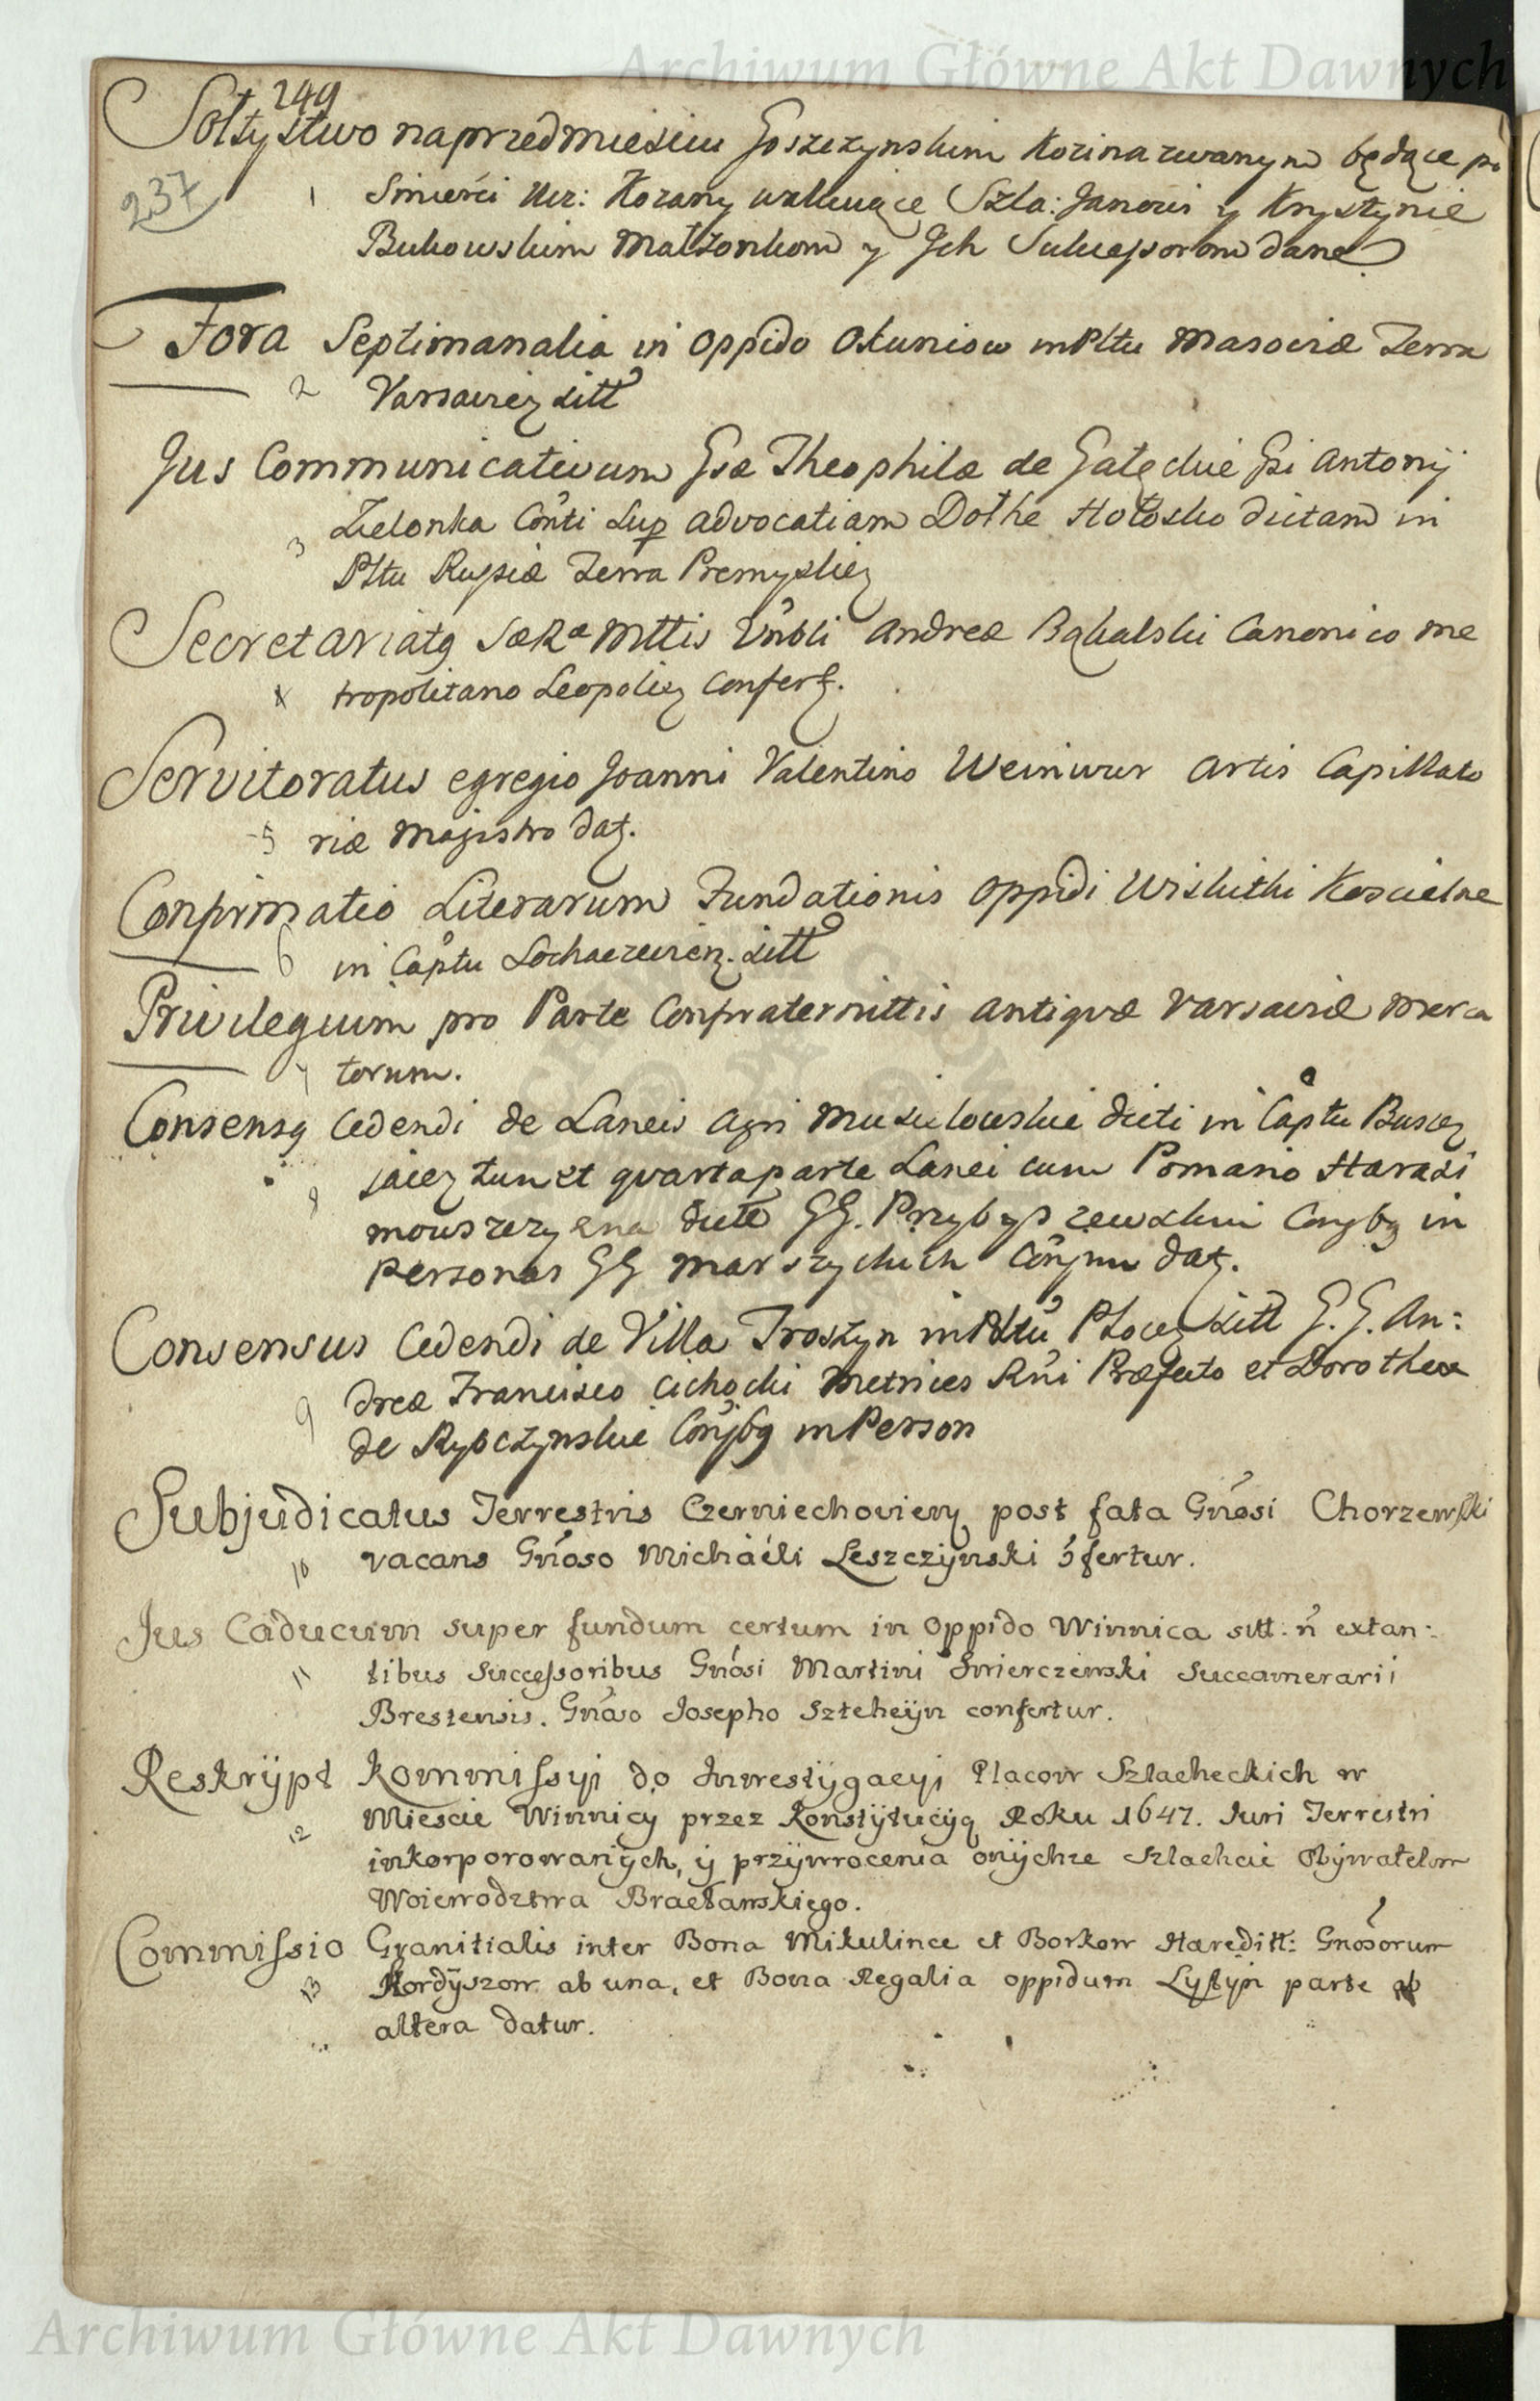 Archiwum Główne Akt Dawnych
249
Sołtystwo na przedmiesciu Goszczynskim Kozina zwanym będące po
237
1 Smierći Ur: Kozany wakuiące Szla: Janowi y Krystynie
Bukowskim Małżonkom y Jch Sukcessorom dane
Fora Septimanalia in Oppido Okuniow in Pltu Masoviæ Terra
2 Varsavieņ sitt
Jus Communicativum Gsæ Theophilæ de Gałeckie Gsi Antonij
3 Zielonka Cońti Sup Advocatiam Dothe Hołosko dictam in
Pltu Russiæ Terra Premyslieņ
Secretariatq SæRæ Mttis Vnbli Andreæ Bąkalski Canonico me
4 tropolitano Leopolieņ Confert.
Servitoratus egregio Joanni Valentino Weinwur Artis Capillato
5 riæ Magistro dat.
Confirmatio Literarum Fundationis Oppidi Wiskithi Koscielne
6 in Captu Sochaczevieņ. sitt
Privilegium pro Parte Confraternittis Antiquæ Varsaviæ Merca
7 torum.
Consensq Cedendi de Laneis Agri Musiulowskie dicti in Captu Busceņ
8 jaceņ tum et quarta parte Lanei cum Pomario Harasi
mowszczyzna dicte GG. Przybyszewskim Conjbq in
Personas GG Marszyckich Conjnu dat.
Consensus Cedendi de Villa Troszyn in Pltu Ploceņ sitt G. G. An:
9 dreæ Francisco Cichocki Metrices Rńi Præfecto et Dorotheæ
de Rybczynskie Conjbq in Person
Subjudicatus Terrestris Czerniechovieņ post fata Gnosi Chorzewski
10 vacans Gnoso Michaéli Leszczÿnski ófertur.
Jus Caducum super fundum certum in Oppido Winnica sitt: ń extan:
11 tibus Successoribus Gnosi Martini Swierczewski Succamerarii
Brestensis. Gnoso Josepho Szteheÿn confertur.
Reskrÿpt Kommissÿi do Jnwestÿgacÿi Placow Szlacheckich w
12 Miescie Winnicÿ przez Konstÿtucÿą Roku 1647. Juri Terrestri
inkorporowanÿch, ÿ przÿwrocenia onÿchże Szlachcie Obÿwatelom
Woiewodztwa Bracławskiego.
Commissio Granitialis inter Bona Mikulince et Borkow Hæreditt: Gnosorum
13 Kordÿszow ab una, et Bona Regalia oppidum Lystÿn parte ab
altera datur.
Archiwum Główne Akt Dawnych